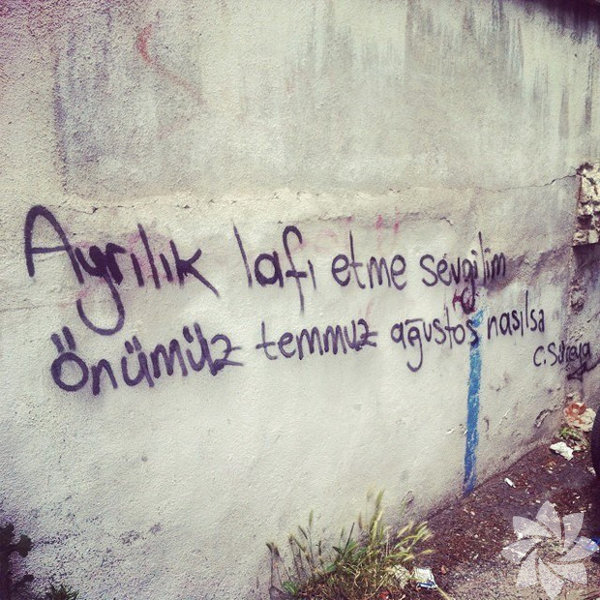 Ayrılık lafı etme sevgilim
önümüz temmuz ağustos nasılsa
C. Süreya